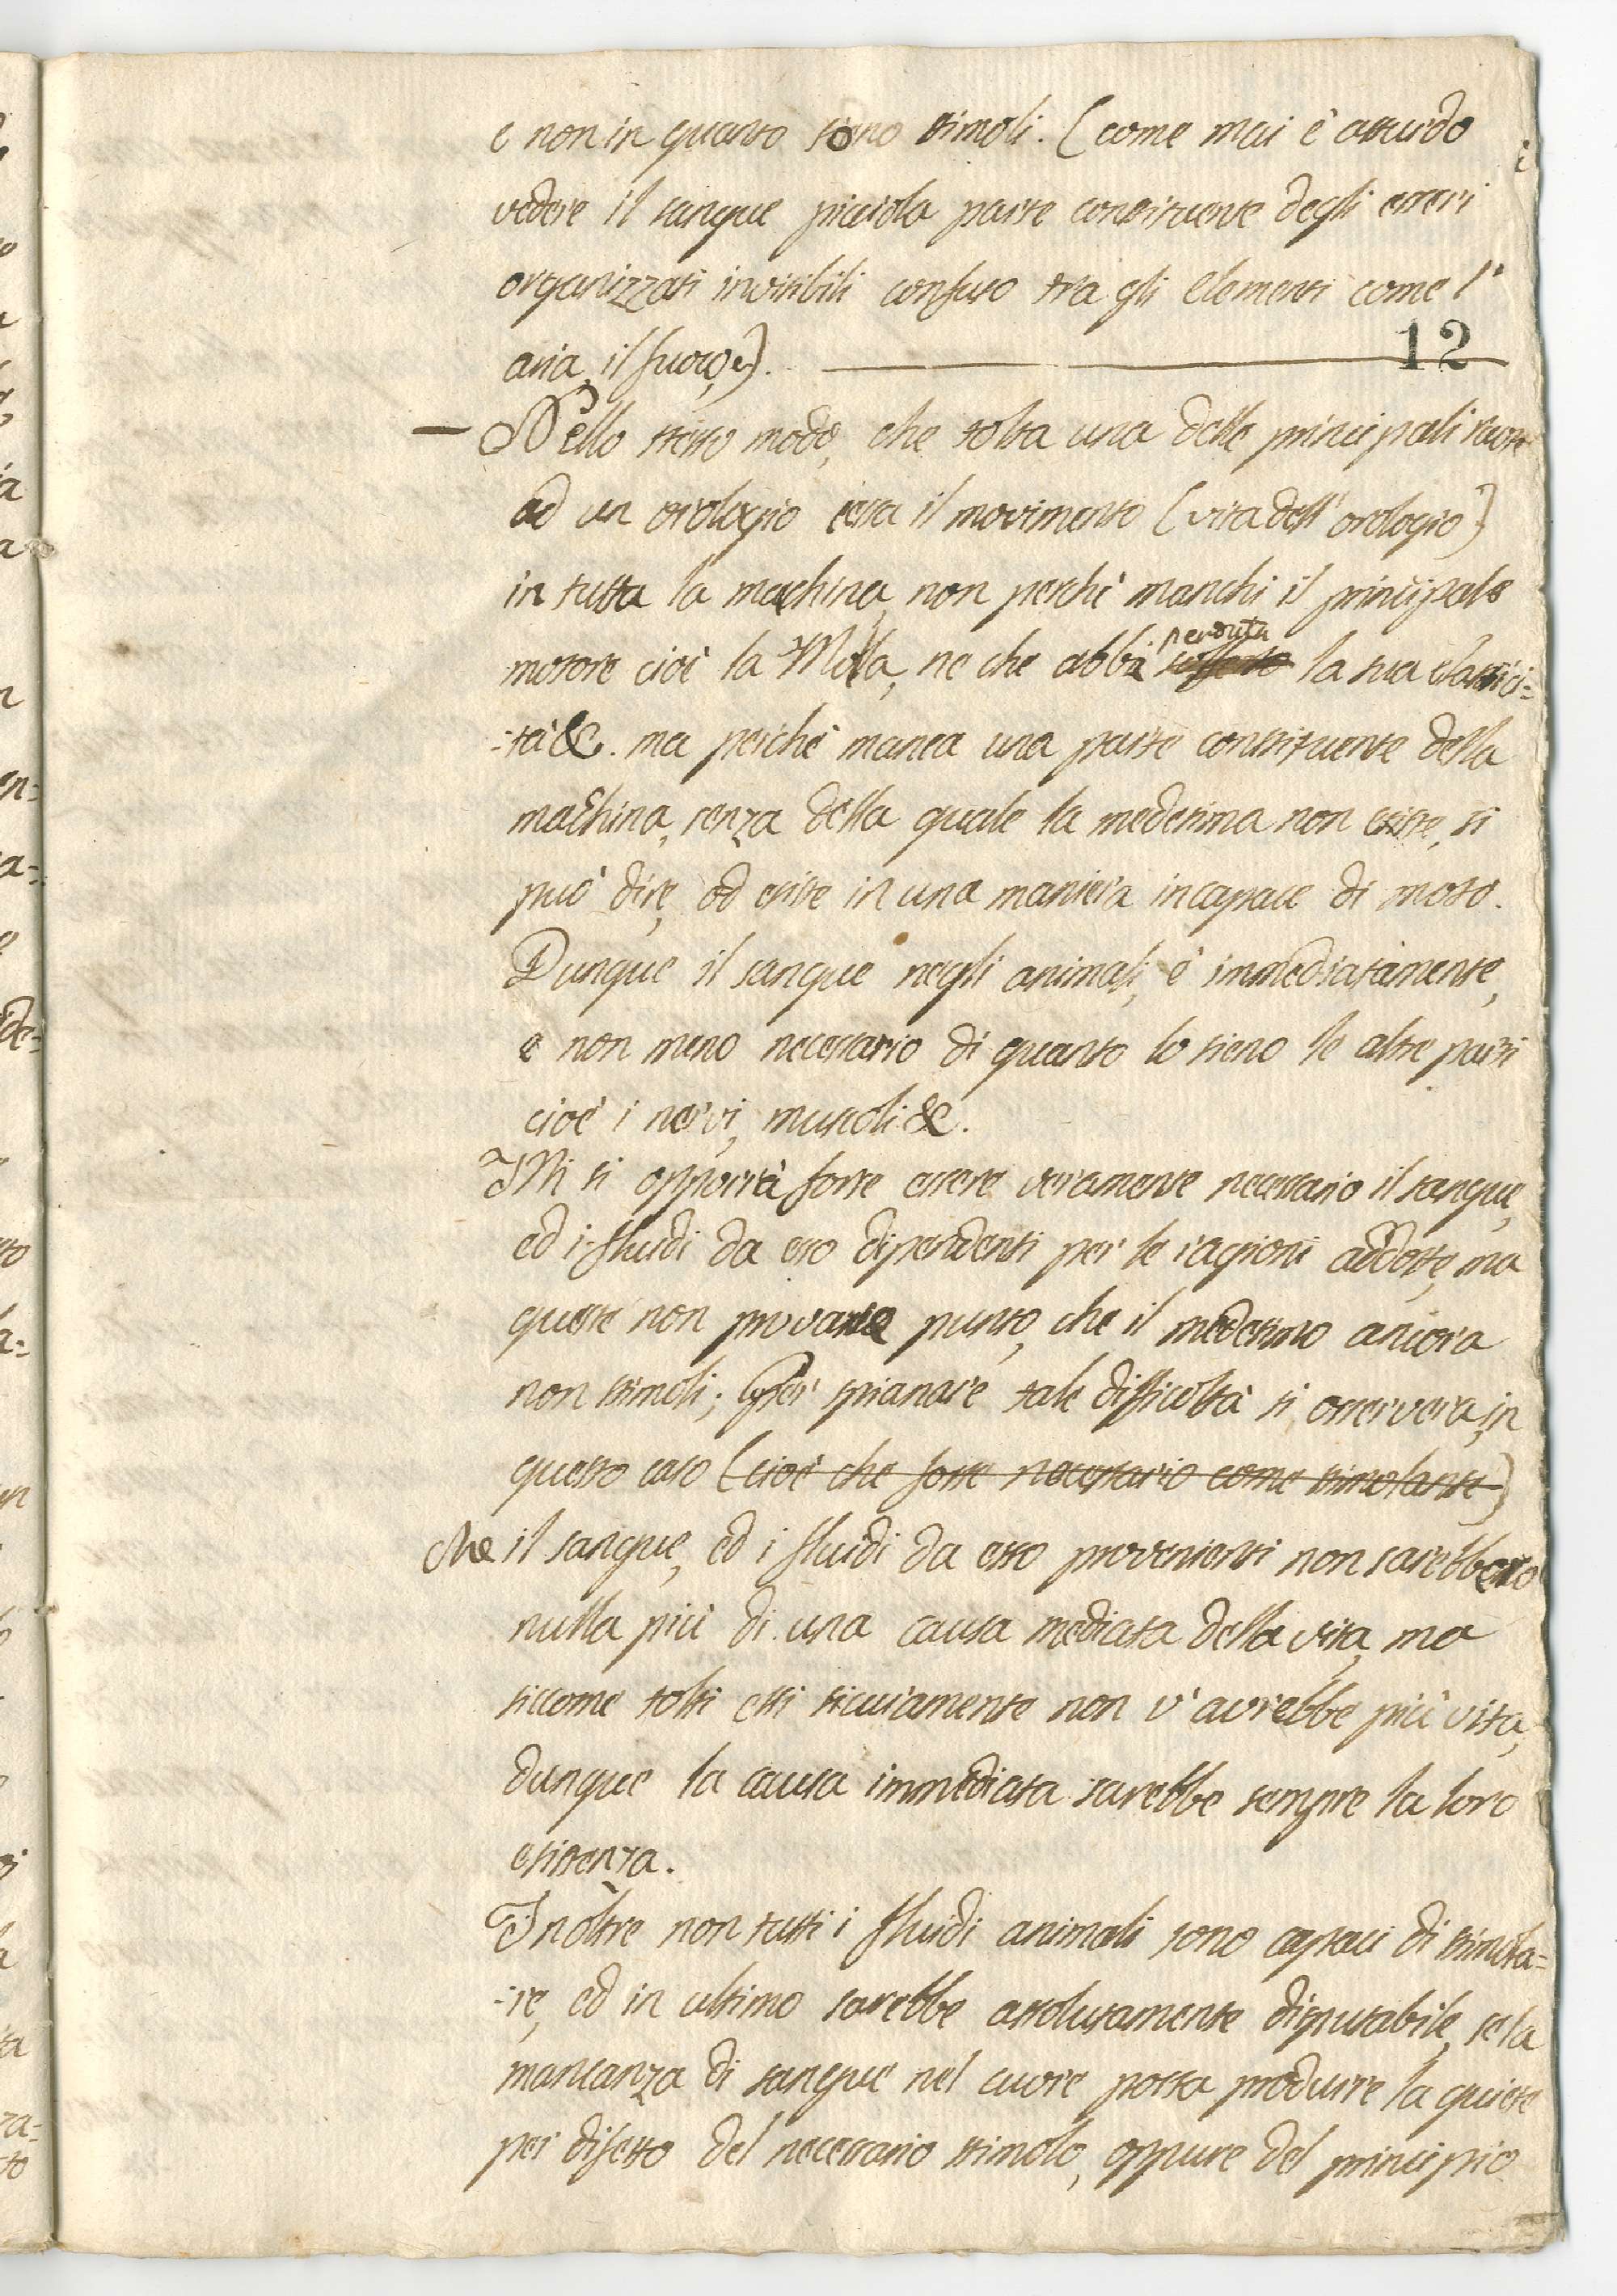 e non in quanto sono stimoli. (come mai è assurdo
vedere il sangue picciola parte constituente degli esseri
organizzati invisibili confuso tra gli Elementi come l'
aria, il fuoco,).
12
Nello stesso modo, che tolta una delle principali ruote
ad un orologio cessa il movimento (vita dell'orologio)
in tutta la machina, non perchè manchi il principale
motore cioè la Molla, ne che abbi perduta la sua elastici=
=tà &c. ma perchè manca una parte constituente della
machina, senza della quale la medesima non esiste, si
può dire, od esiste in una maniera incapace di moto.
Dunque il sangue negli animali, è immediatamente,
e non meno necessario di quanto lo sieno le altre parti
cioè i nervi, muscoli &c.
Mi si opporrà forse essere veramente necessario il sangue,
ed i fluidi da esso dipendenti per le ragioni addotte, ma
queste non provare punto, che il medesimo ancora
non stimoli; Per spianare tale difficoltà si osserverà, in
questo caso (cioè che fosse necessario come stimolante)
che il sangue, ed i fluidi da esso provenienti non sarebbero
nulla più di una causa mediata della vita, ma
siccome tolti essi sicuramente non v'avrebbe più vita,
dunque la causa immediata sarebbe sempre la loro
esistenza.
Inoltre non tutti i fluidi animali sono capaci di stimola=
=re, ed in ultimo sarebbe assolutamente disputabile, se la
mancanza di sangue nel cuore possa produrre la quiete
per difetto del necessario stimolo, oppure del principio